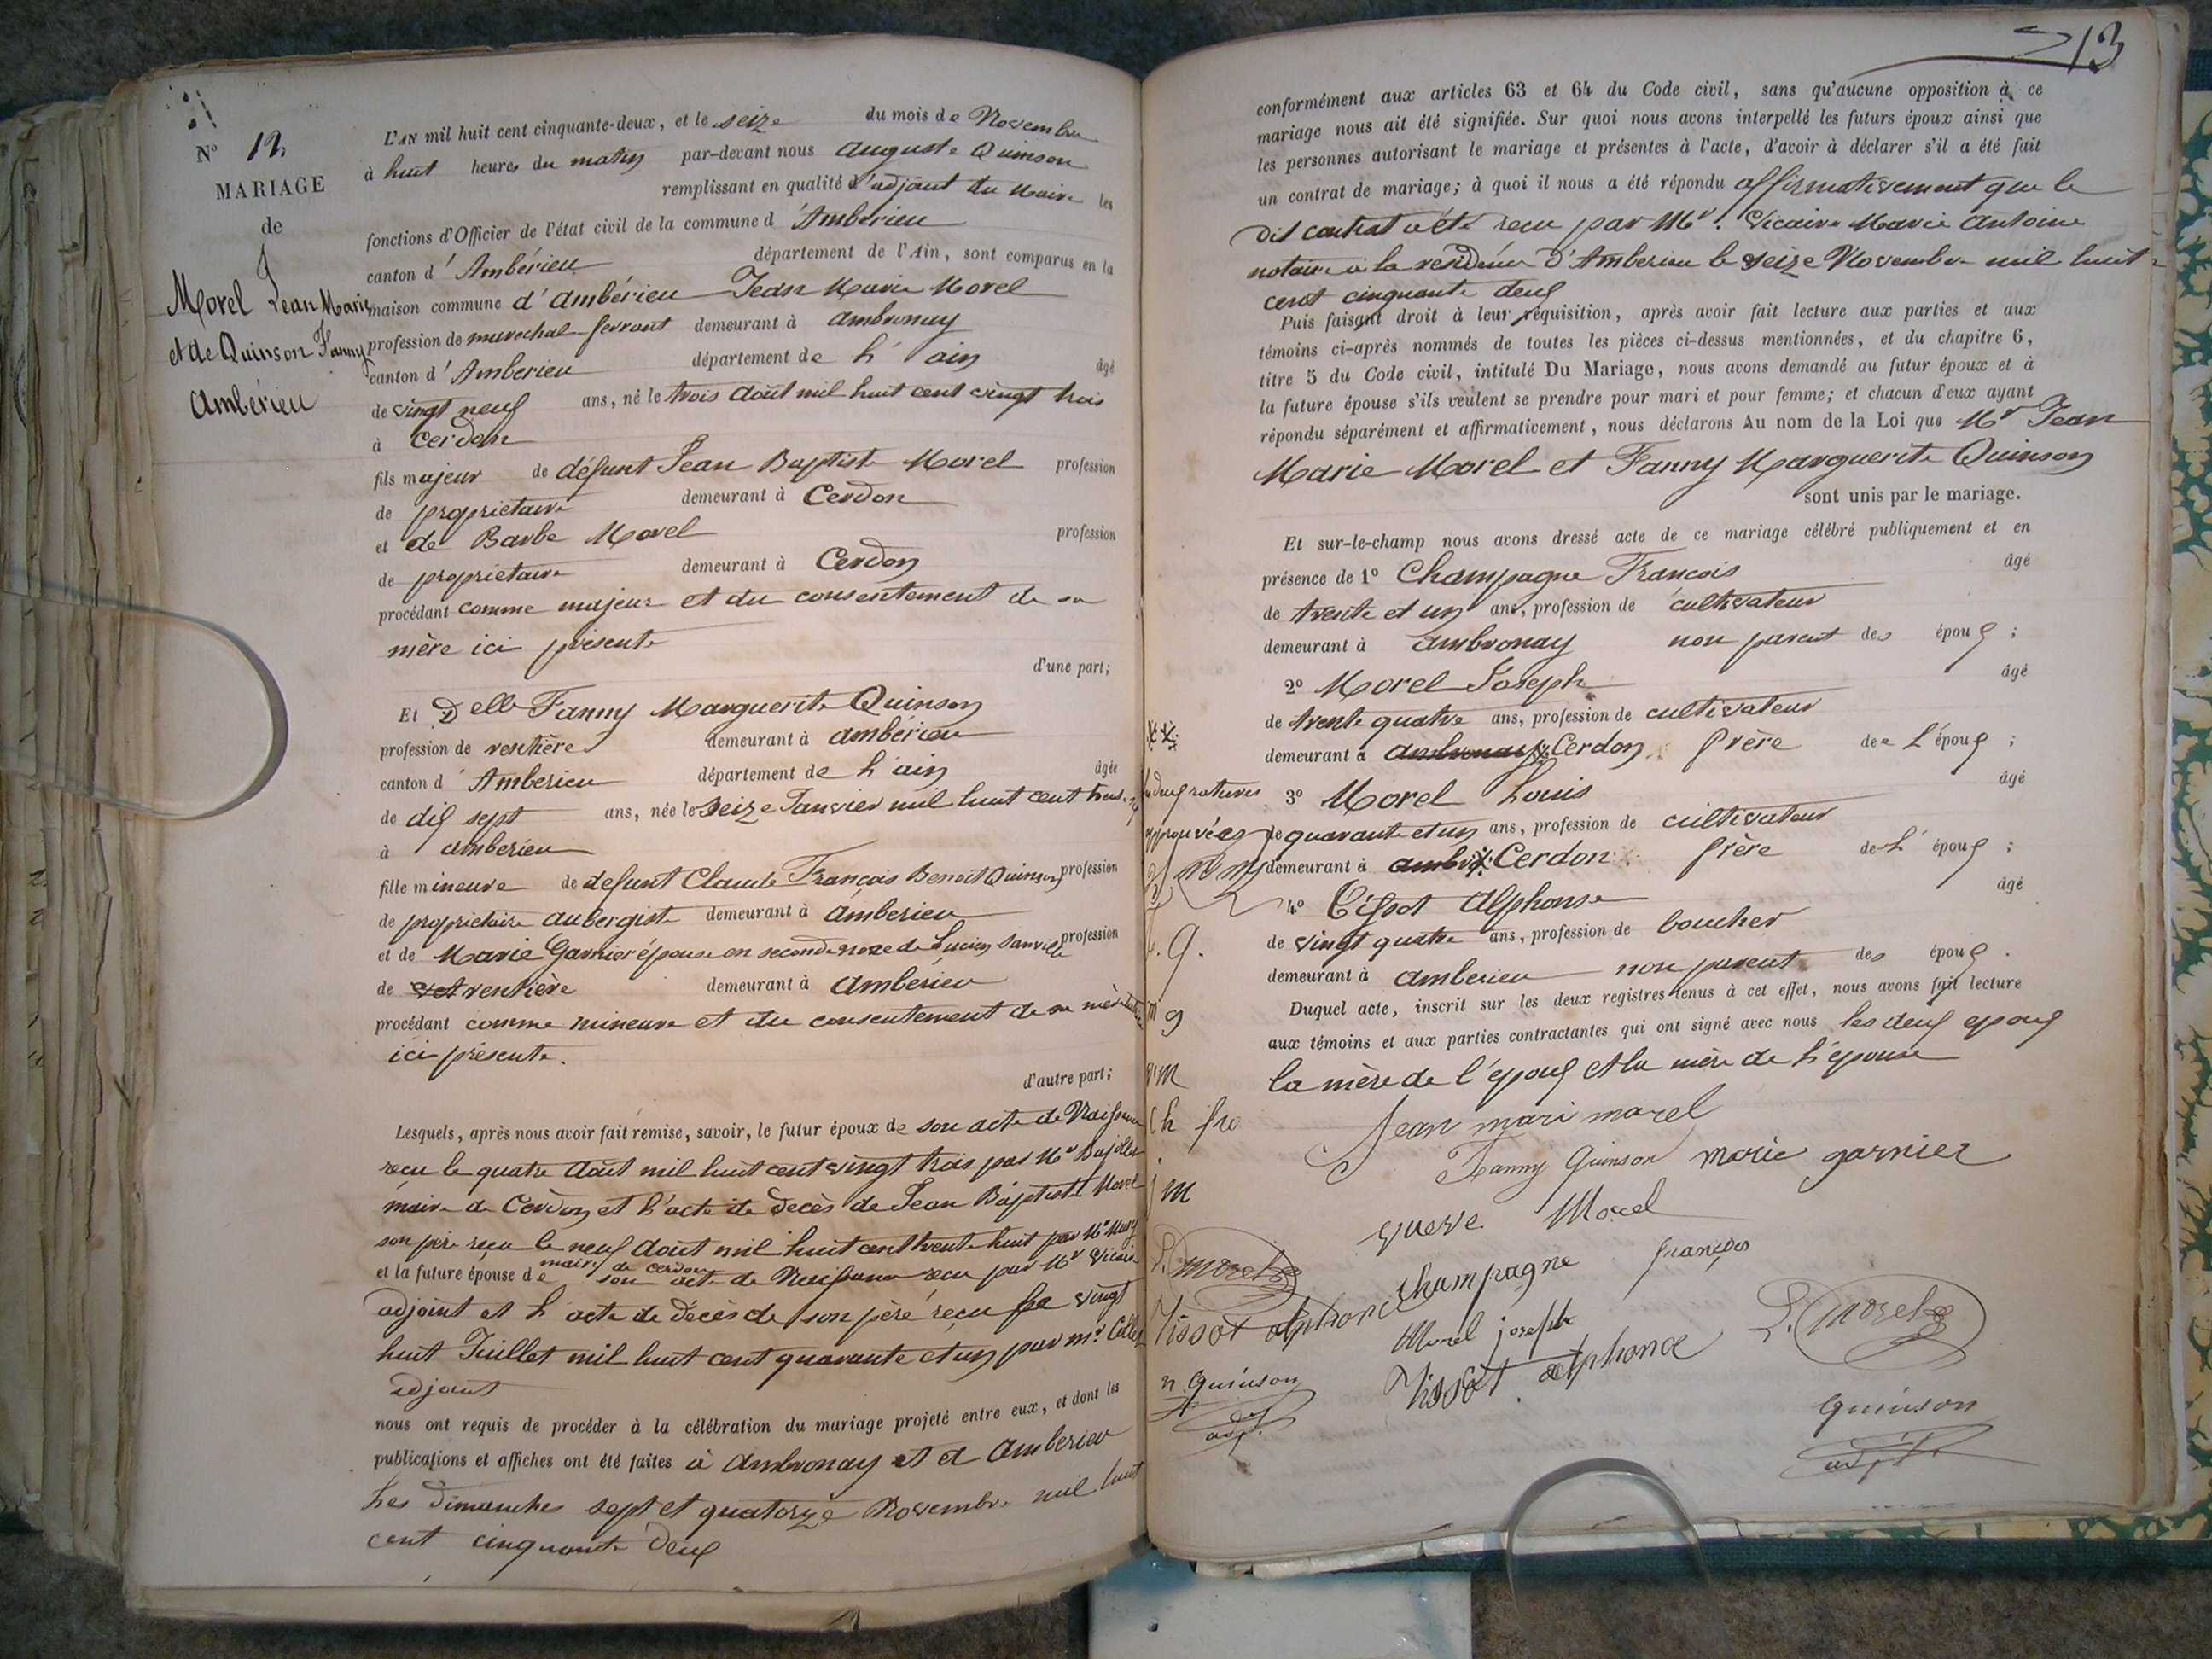 N° 12
MARIAGE
de
Morel Jean Marie
et de Quinson Fanny
Ambérieu
L'AN mil huit cent cinquante-deux, et le seize du mois de Novembre
à huit heures du matin par-devant nous Auguste Quinson
remplissant en qualité d'adjoint du Maire les
fonctions d'Officier de l'état civil de la commune d'Ambérieu
canton d'Ambérieu département de l'Ain, sont comparus en la
maison commune d'ambérieu Jean Marie Morel
profession de marechal ferrant demeurant à ambronay
canton d'Amberieu département de l'ain âgé
de vingt neuf ans, né le trois août mil huit cent vingt trois
à Cerdon
fils majeur de défunt Jean Baptiste Morel profession
de propriétaire demeurant à Cerdon
et de Barbe Morel profession
de propriétaire demeurant à Cerdon
procédant comme majeur et du consentement de sa
mère ici présente
d'une part;
Et Delle Fanny Marguerite Quinson
profession de rentière demeurant à ambérieu
canton d'Amberieu département de l'ain âgée
de dix sept ans, née le seize Janvier mil huit cent
à amberieu
fille mineure de defunt Claude François Benoît Quinson profession
de propriétaire aubergiste demeurant à amberieu
et de Marie Garnier épouse en seconde noce de Lucien profession
de rentière demeurant à Ambérieu
procédant comme mineure et du consentement de sa mère
ici présente.
d'autre part;
Lesquels, après nous avoir fait remise, savoir, le futur époux de son acte de Naissance
recu le quatre août mil huit cent vingt trois par Mr
maire de Cerdon et l'acte de decès de Jean Baptiste Morel
son père reçu le neuf août mil huit cent trente huit par Mr
maire de cerdon
et la future épouse de son acte de Naissance recu par Mr Vicaire
adjoint et l'acte de décès de son père reçu le vingt
huit Juillet mil huit cent quarante et un par mr.
adjoint
nous ont requis de procéder à la célébration du mariage projeté entre eux, et dont les
publications et affiches ont été faites à Ambronay et à Amberieu
les dimanches sept et quatorze Novembre mil huit
cent cinquante deux
213
conformément aux articles 63 et 64 du Code civil, sans qu'aucune opposition à ce
mariage nous ait été signifiée. Sur quoi nous avons interpellé les futurs époux ainsi que
les personnes autorisant le mariage et présentes à l'acte, d'avoir à déclarer s'il a été fait
un contrat de mariage; à quoi il nous a été répondu affirmativement que le
dit contrat a été recu par Mr. Vicaire Marie Antoine
notaire à la residence d'Amberieu le seize Novembre mil huit
cent cinquante deux
Puis faisant droit à leur réquisition, après avoir fait lecture aux parties et aux
témoins ci-après nommés de toutes les pièces ci-dessus mentionnées, et du chapitre 6,
titre 5 du Code civil, intitulé Du Mariage, nous avons demandé au futur époux et à
la future épouse s'ils veulent se prendre pour mari et pour femme; et chacun d'eux ayant
répondu séparément et affirmativement, nous déclarons Au nom de la Loi que Mr Jean
Marie Morel et Fanny Marguerite Quinson
sont unis par le mariage.
Et sur-le-champ nous avons dressé acte de ce mariage célébré publiquement et en
présence de 1° Champagne François âgé
de trente et un ans, profession de cultivateur
demeurant à ambronay non parent des époux ;
2° Morel Joseph âgé
de trente quatre ans, profession de cultivateur
demeurant à ambronay Cerdon frère de L'époux ;
3° Morel Louis âgé
de quarante et un ans, profession de cultivateur
demeurant à ambr Cerdon frère de L'époux ;
4° Tissot Alphonse âgé
de vingt quatre ans, profession de boucher
demeurant à amberieu non parent des époux .
Duquel acte, inscrit sur les deux registres tenus à cet effet, nous avons fait lecture
aux témoins et aux parties contractantes qui ont signé avec nous les deux epoux
la mère de l'époux et la mère de l'épouse
ratures
approuvées
f. q.
m g
v m
Ch fra
j m
L. Morel
Tissot alphonce
n. Quinson
adj.
Jean mari marel
Fanny Quinson marie garnier
veuve Morel
champagne françois
Morel joseph
L. Morel
Tissot alphonce
Quinson
adjt.